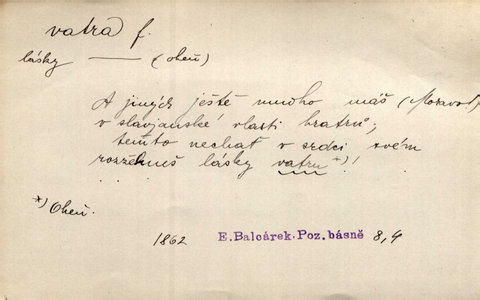 vatra f.
lásky —— (oheň)
A jiných ještě mnoho máš (Moravo)
v slavjanské vlasti bratrů;
těmto nechať v srdci svém
rozžehneš lásky vatru *)!
. . .
*) Oheň.
1862 E. Balcárek. Poz. básně 8,4